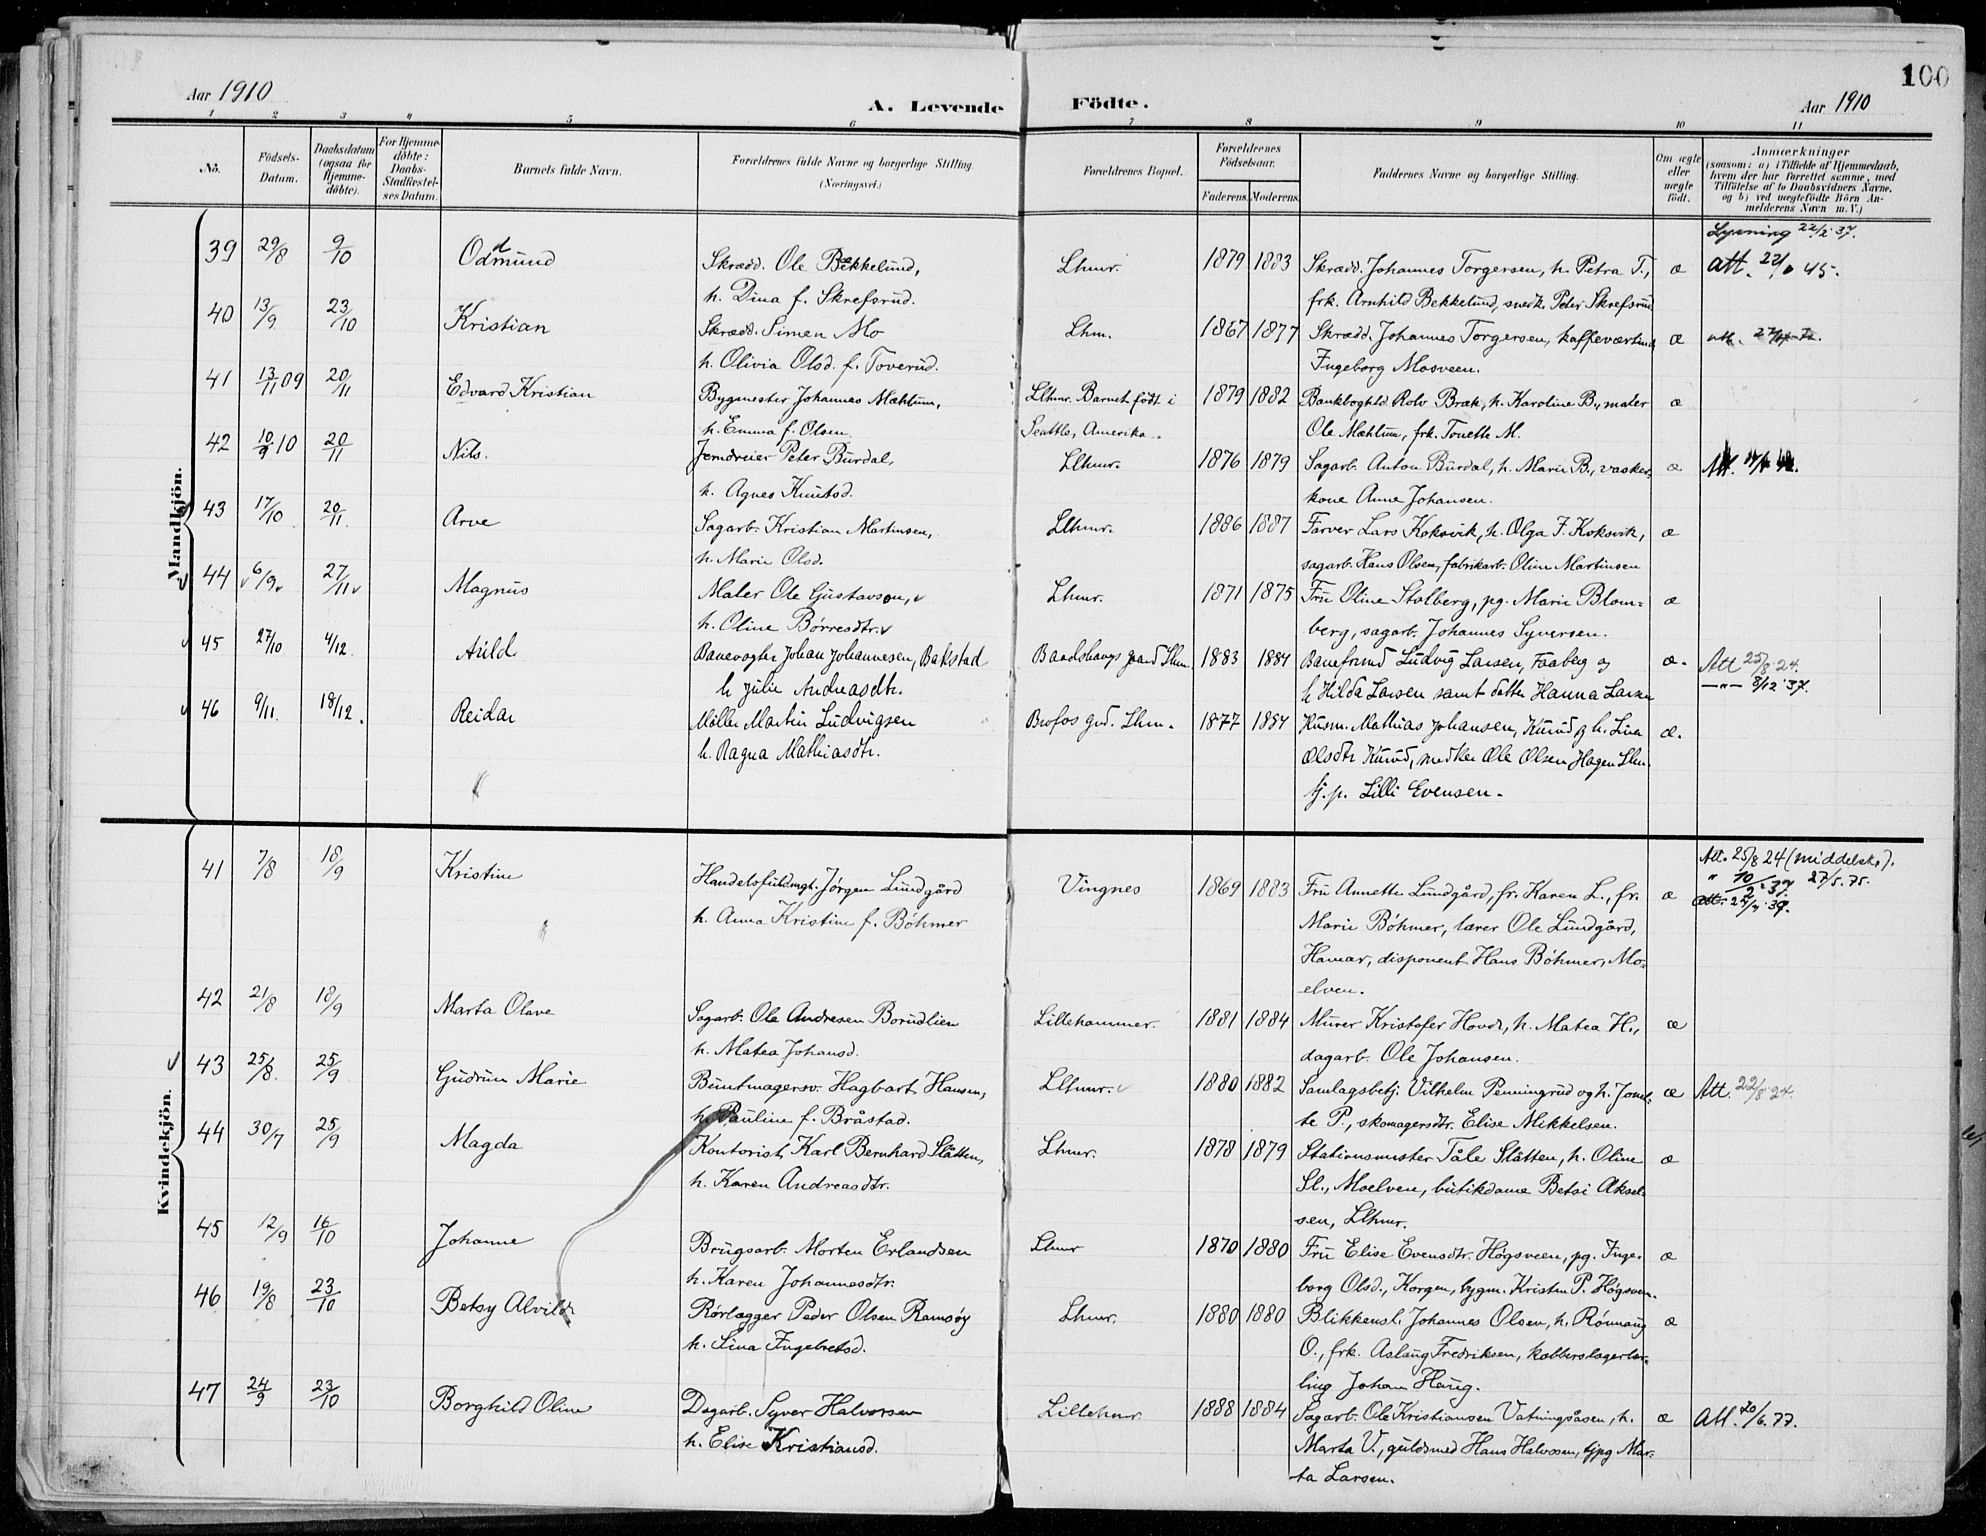 100
Aar 1910 A. Levende Födte. Aar 1910
1 2 3 4 5 6 7 8 9 10 11
No. Födsels-Datum. Daabsdatum (ogsaa for Hjemme-döbte). For Hjemme-döbte: Daabs-Stadfæstel-ses Datum. Barnets fulde Navn. Forældrenes fulde Navne og borgerlige Stilling. (Næringsvei.) Forældrenes Bopæl. Forældrenes Födselsaar. Faderens. Moderens. Faddernes Navne og borgerlige Stilling. Om ægte eller uægte födt. Anmærkninger (saasom: a) i Tilfælde af Hjemmedaab, hvem der har forrettet samme, med Tilföielse af to Daabsvidners Navne, og b) ved uægtefödte Börn An-melderens Navn m. V.)
Mandkjön.
Lysning 22/2 37.
39 29/8 9/10 Odmund Skrædd. Ole Bekkelund, Lhmr. 1879 1883 Skrædd. Johannes Torgersen, h. Petra T., æ Att.
h. Dina f. Skrefsrud. frk. Arnhild Bekkelund, snedk. Peter Skrefsrud
40 13/9 23/10 Kristian Skrædd. Simen Mo Lhm. 1867 1877 Skrædd. Johannes Torgersen, kaffeværtinde æ att.
h. Olivia Olsd. f. Toverud. Ingeborg Mosveen.
41 13/11 09 20/11 Edvard Kristian Bygmester Johannes Mæhlum, Llhmr. Barnet født i 1879 1882 Bankboghld. Rolv Bræk, h. Karoline B., maler æ
h. Emma f. Olsen Seattle, Amerika. Ole Mæhlum, frk. Tonette M.
42 10/9 10 20/11 Nils. Jerndreier Peter Burdal, Llhmr. 1876 1879 Sagarb. Anton Burdal, h. Marie B., vasker- æ Att.
h. Agnes Knutsd. kone Anne Johansen.
43 17/10 20/11 Arve Sagarb. Kristian Martinsen, Llhmr. 1886 1887 Farver Lars Koksvik, h. Olga F. Koksvik, æ
h. Marie Olsd. sagarb. Hans Olsen, fabrikarb. Oline Martinsen
44 6/9 27/11 Magnus Maler Ole Gustavson, Lhmr. 1871 1875 Fru Oline Stolberg, pg. Marie Blom- æ
h. Oline Børresdtr. berg, sagarb. Johannes Syversen.
45 27/10 4/12 Arild Banevogter Johan Johannesen, Bakstad Baadshaugs grænd Lhm. 1883 1884 Baneformd Ludvig Larsen, Faaberg og æ. Att 25/8 24.
h Julie Andreasdtr. h Hilda Larsen samt datter Hanna Larsen —"— 8/12 37.
46 9/11 18/12. Reidar Møller Martin Ludvigsen Brofos grd. Lhm. 1877 1884 Husm. Mathias Johansen, Kurud og h. Lina æ.
h. Ragna Mathiasdtr. Olsdtr Kurud, snedker Ole Olsen Hagen Lhm.
tj.p. Lilli Evensen.
Kvindekjön.
Att. 25/8 24 (middelsk.).
" 10/2 37. 27/5.75.
41 7/8 18/9 Kristine Handelsfuldmgt. Jørgen Lundgård Vingnes 1869 1883 Fru Annette Lundgård, fr. Karen L., fr. æ
h. Anna Kristine f. Bøhmer Marie Bøhmer, lærer Ole Lundgård,
Hamar, disponent Hans Bøhmer, Mo-
elven.
42 21/8 18/9 Marta Olave Sagarb. Ole Andresen Borudlien Lillehammer. 1881 1884 Murer Kristofer Hovde, h. Matea H., æ
h. Matea Johansd. dagarb. Ole Johansen.
43 25/8 25/9 Gudrun Marie Buntmagersv. Hagbart Hansen, Llhmr. 1880 1882 Samlagsbetj. Vilhelm Penningrud og h. Jonet- æ Att. 22/8 24.
h. Pauline f. Bråstad. te P., skomagersdtr. Elise Mikkelsen.
44 30/7 25/9 Magda Kontorist Karl Bernhard Slåtten, Lhmr. 1878 1879 Stationsmester Tåle Slåtten, h. Oline æ
h. Karen Andreasdtr. Sl., Moelven, butikdame Betsi Aksel-
sen, Llhmr.
45 12/9 16/10 Johanne Brugsarb. Morten Erlandsen Lhmr 1870 1880 Fru Elise Evensdtr. Høgsveen, pg. Inge- æ
h. Karen Johannesdtr. borg Olsd., Korgen, bygm. Kristen P. Høgsveen.
46 19/8 23/10 Betsy Alvilde Rørlægger Peder Olsen Ramsøy Lhmr. 1880 1880 Blikkensl. Johannes Olsen, h. Rønnaug æ
h. Lina Ingebretsd. O., frk. Aslaug Fredriksen, kobberslagerlær-
ling Johan Haug.
47 24/9 23/10 Borghild Oline Dagarb. Syver Halvorsen Lillehmr 1888 1884 Sagarb. Ole Kristiansen Vatningsåsen, h. æ Att. 20/6.77.
h. Elise Kristiansd. Marta V., guldsmed Hans Halvorsen, tjpg Mar-
ta Larsen.